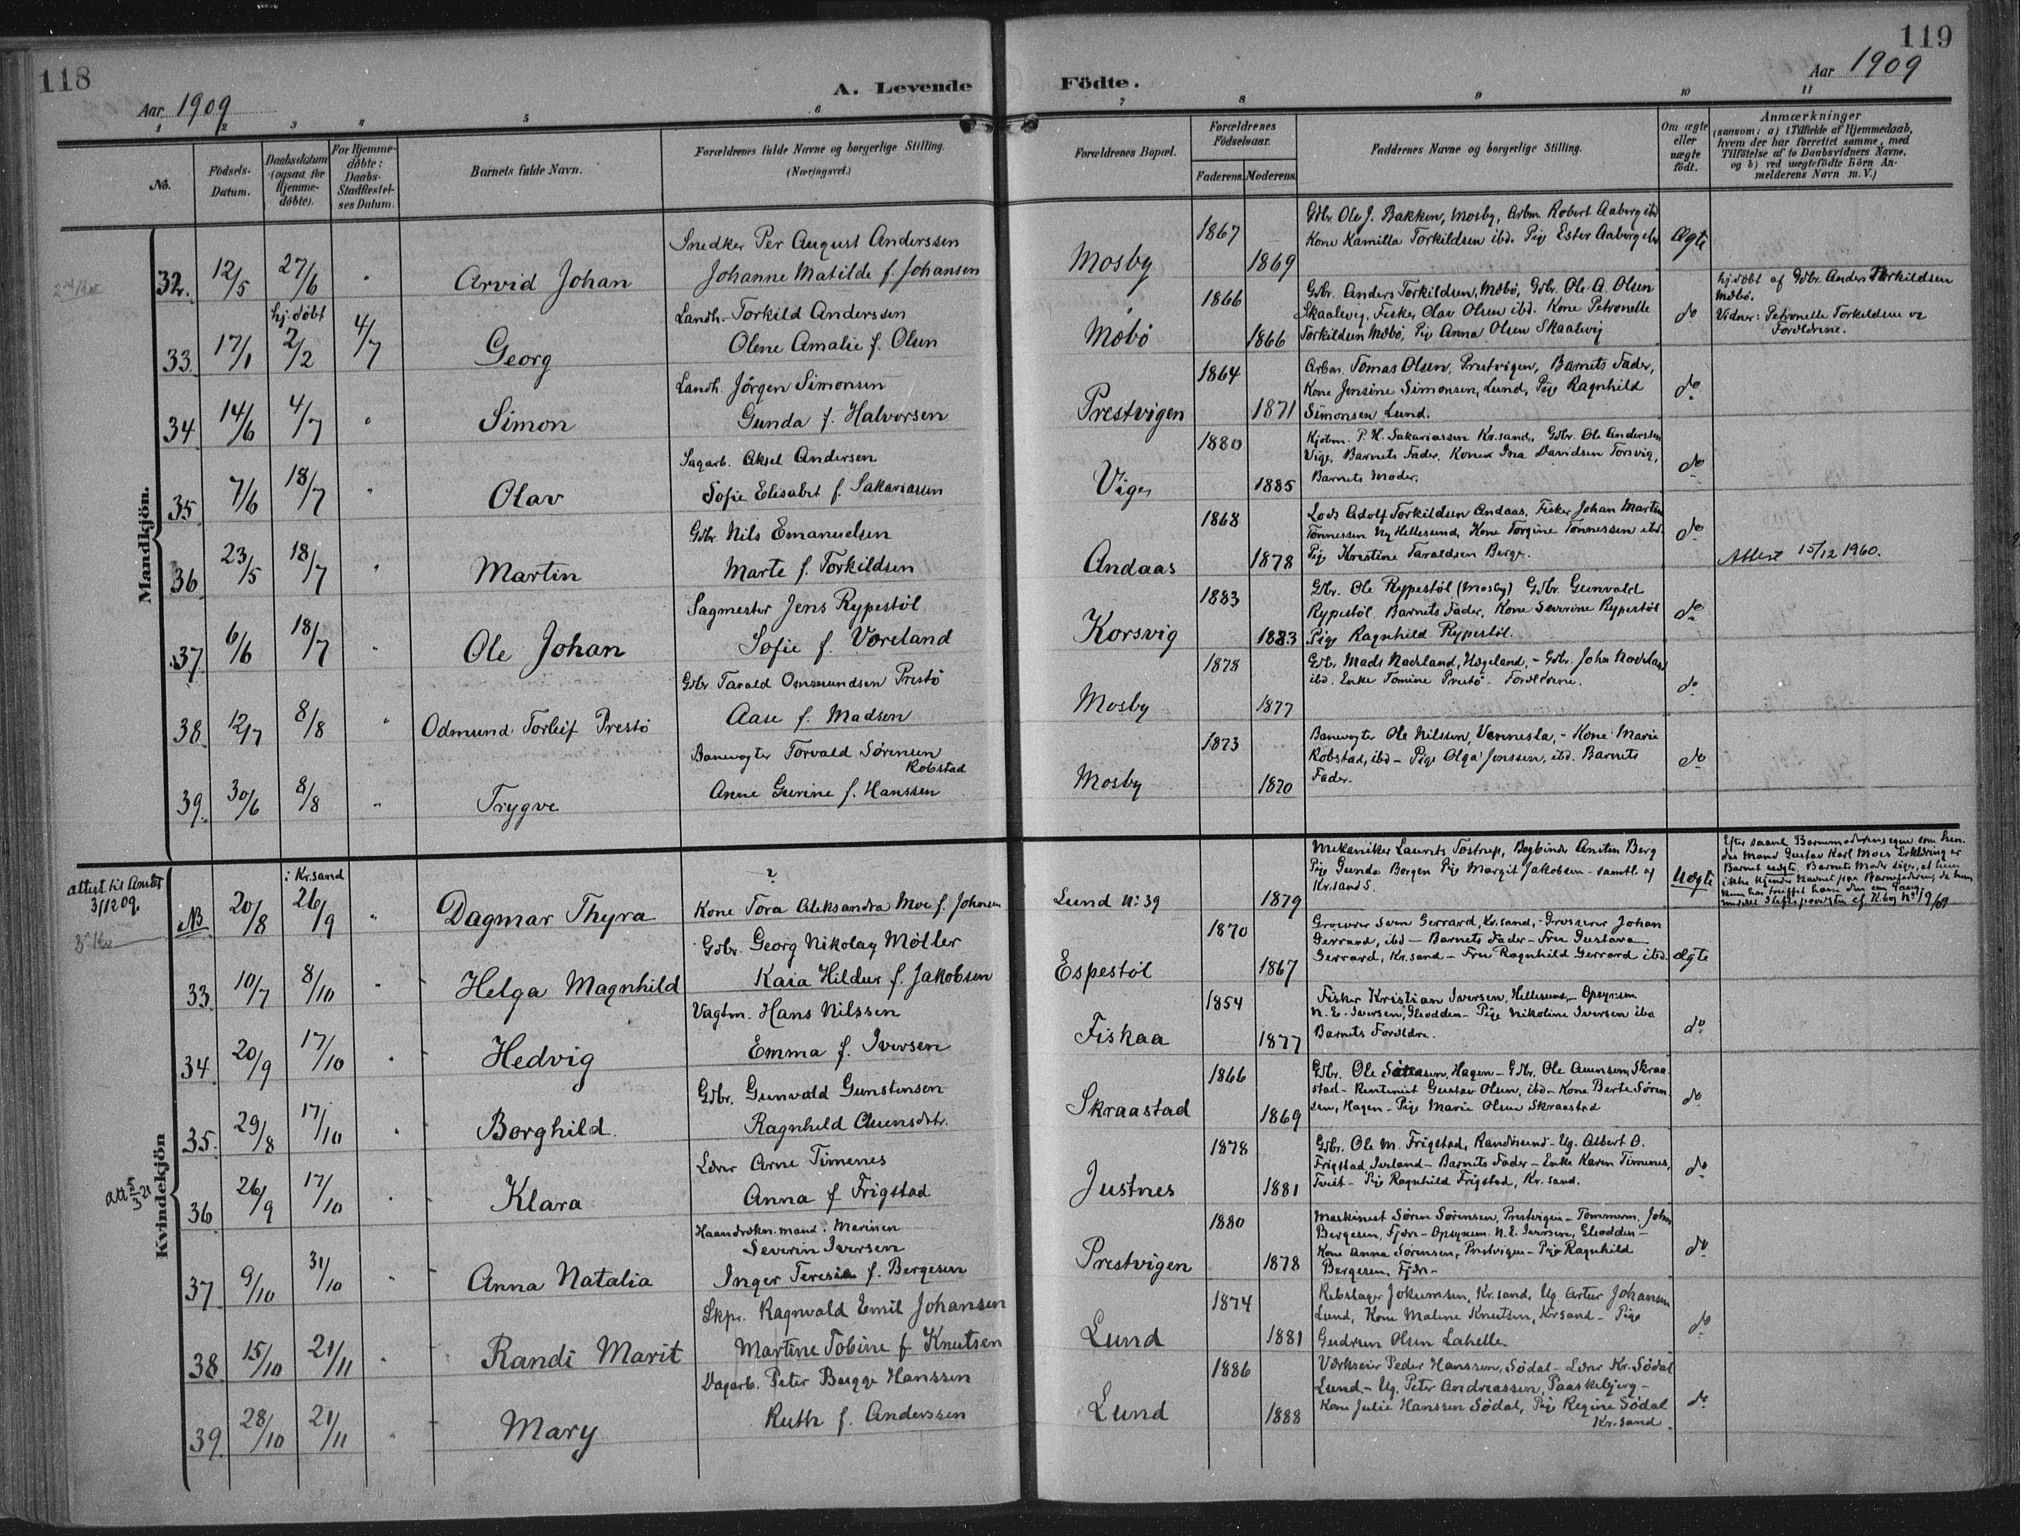 118
Aar 1909
A. Levende
Födte.
119
Aar 1909
1
2
3
4
5
6
7
8
9
10
11
No.
Födsels-
Datum.
Daabsdatum
(ogsaa for
Hjemme-
døbte).
For Hjemme-
døbte:
Daabs-
Stadfæstel-
ses Datum.
Barnets fulde Navn.
Forældrenes fulde Navne og borgerlige Stilling.
(Næringsvei.)
Forældrenes Bopæl.
Forældrenes
Födselsaar.
Faderens.
Moderens.
Faddernes Navne og borgerlige Stilling.
Om ægte
eller
uægte
født.
Anmærkninger
(saasom: a) i Tilfælde af Hjemmedaab,
hvem der har forrettet samme, med
Tilföielse af to Daabsvidners Navne.
og b) ved uægtefödte Börn An-
melderens Navn m. V.)
Mandkjön.
32.
12/5
27/6
"
Arvid Johan
Snedker Per August Anderssen
Johanne Matilde f. Johansen
Mosby
1867
1869
Gdbr. Ole J. Bakken, Mosby, Arbm. Robert Aaberg ibd
Kone Kamilla Torkildsen ibd. Pige Ester Aaberg ibd
Ægte
33.
17/1
hj.døbt
2/2
4/7
Georg
Landh. Torkild Anderssen
Olene Amalie f. Olsen
Mæbø
1866
1866
Gdbr. Anders Torkildsen, Mæbø, Gdbr. Ole A. Olsen
Skaalevig, Fisker Olav Olsen ibd. Kone Petronelle
Torkildsen Mæbø, Pige Anna Olsen Skaalevig
do
hj.døbt af Gdbr. Anders Torkildsen
Mæbø.
Vidner: Petronelle Torkildsen og
Forældrene.
34
14/6
4/7
"
Simon
Landh. Jörgen Simonsen
Gunda f. Halvorsen
Prestvigen
1864
1871
Arbm. Tomas Olsen, Prestvigen, Barnets Fader,
Kone Jensine Simonsen, Lund, Pige Ragnhild
Simonsen Lund.
do
35.
7/6
18/7
"
Olav
Sagarb. Aksel Andersen
Sofie Elisabet f. Sakariassen
Vige
1880
1885
Kjöbm. P. H. Sakariassen Kr.sand, Gdbr. Ole Anderssen
Vige, Barnets Fader, Kone Ina Davidsen Torsvig,
Barnets Moder.
do
36
23/5
18/7
"
Martin
Gdbr. Nils Emanuelsen
Marte f. Torkildsen
Andaas
1868
1878
Lods Adolf Torkildsen Andaas, Fisker Johan Martin
Tønnessen Ny Hellesund, Kone Torgine Tønnessen ibd.
Pige Kristine Taraldsen Berge.
do
Attest 15/12 1960.
37
6/6
18/7
"
Ole Johan
Sagmester Jens Rypestøl
Sofie f. Væreland
Korsvig
1883
1883
Gdbr. Ole Rypestøl (Mosby) Gdbr. Gunvald
Rypestøl Barnets Fader, Kone Severine Rypestøl
Pige Ragnhild Rypestøl.
do
38.
12/7
8/8
"
Odmund Torleif Prestø
Gdbr Tarald Ommundsen Prestø
Aase f. Madsen
Mosby
1878
1877
Gdbr. Mads Nadeland, Hægeland, - Gdbr. John Nodeland
ibd. Enke Tomine Prestø - Forældrene.
do
39.
30/6
8/8
"
Trygve
Banevogter Torvald Sørensen
Robstad
Anne Gurine f. Hanssen
Mosby
1873
1870
Banevogter Ole Nilssen, Vennesla, - Kone Marie
Robstad, ibd - Pige Olga Jenssen, ibd. Barnets
Fader.
do
Kvindekjön
attest til Amtet
3/12 09.
NB
20/8
i Kr.sand
26/9
"
Dagmar Thyra
?
Kone Tora Aleksandra Moe f. Johnsen
Lund N: 39
1879
Mekaniker Laurits Tostrup, Bogbinder Aniten Berg
Pige Gunda Borgen Pige Margit Jakobsen - samtl. af
Kr.sand S.
Uægte
Efter saavel Barnemoderens egen som hen-
des Mand Gustav Karl Moes Erklæring er
Barnet uægte. Barnets Moder siger, at hun
ikke kjender Navnet paa Barnefaderen, da hun
kun har truffet ham den ene Gang
33.
10/7
8/10
"
Helga Magnhild
Gdbr. Georg Nikolay Møller
Kaia Hildur f. Jakobsen
Espestøl
1870
1867
Grosserer Sven Gerrard, Kr.sand, - Grosserer Johan
Gerrard, ibd - Barnets Fader - Fru Gustava
Gerrard, Kr.sand - Fru Ragnhild Gerrard ibd.
ægte
34
20/9
17/10
"
Hedvig
Vagtm. Hans Nilssen
Emma f. Iversen
Fiskaa
1854
1877
Fisker Kristian Iversen, Hellesund, - Opsynsm
N. E. Iversen, Glodden - Pige Nikoline Iversen ibd
Barnets Forældre.
do
35.
29/8
17/10
"
Borghild.
Gdbr. Gunvald Gunstensen
Ragnhild Auensdtr.
Skraastad
1866
1869
Gdbr. Ole Sørensen, Hagen - Gdbr. Ole Auensen, Skraa-
stad - Rentenist Gustav Olsen, ibd - Kone Berte Søren-
sen, Hagen - Pige Marie Olsen Skraastad
do
Att. 5/3 21
36
26/9
17/10
"
Klara
Lærer Arne Timenes
Anna f. Frigstad
Justnes
1878
1881
Gdbr. Ole M. Frigstad, Randösund - Ug. Albert O.
Frigstad, Iveland - Barnets Fader - Enke Karen Timenes,
Tveit - Pige Ragnhild Frigstad, Kr.sand.
do
37
9/10
31/10
"
Anna Natalia
Haandværksmand i Marinen
Severin Iversen
Inger Teresia f. Bergesen
Prestvigen
1880
1878
Maskinist Søren Sørensen, Prestvigen - Tømmerm. John
Bergesen, Fjære - Opsynsm. N. E. Iversen, Glodden -
Kone Anna Sørensen, Prestvigen - Pige Ragnhild
Bergesen, Fjære -
do
38.
15/10
21/11
"
Randi Marit
Skpr. Ragnvald Emil Johansen
Martine Tobine f Knutsen
Lund
1874
1881
Rebslager Jokumsen, Kr.sand, Ug. Artur Johansen
Lund, Kone Maline Knutsen, Kr.sand - Pige
Gudrun Olsen Lahelle -
do
39.
28/10
21/11
"
Mary
Dagarb. Peter Bugge Hanssen
Ruth f. Anderssen
Lund
1886
1888
Værkseier Peder Hanssen, Sødal - Lærer Kr. Sødal
Lund - Ug. Peter Andreassen, Paaskebjerg -
Kone Julie Hanssen Sødal, Pige Regine Sødal
Kr.sand
do